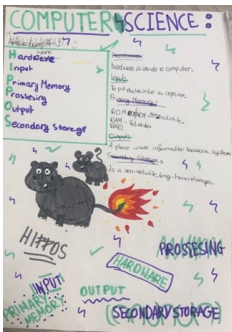 COMPUTER SCIENCE:
Hardware
Input
Primary Memory
Prossesing
Output
Secondary Storage
Hardware
hardware is inside a computer.
Inputs
To put data into a computer.
Primary Memory
A place where information leaves the system
Is a non-volatile, long-term storage.
?
HIPPOS
PROSSESING
HARDWARE
INPUT
PRIMARY
MEMORY
OUTPUT
SECONDARY STORAGE